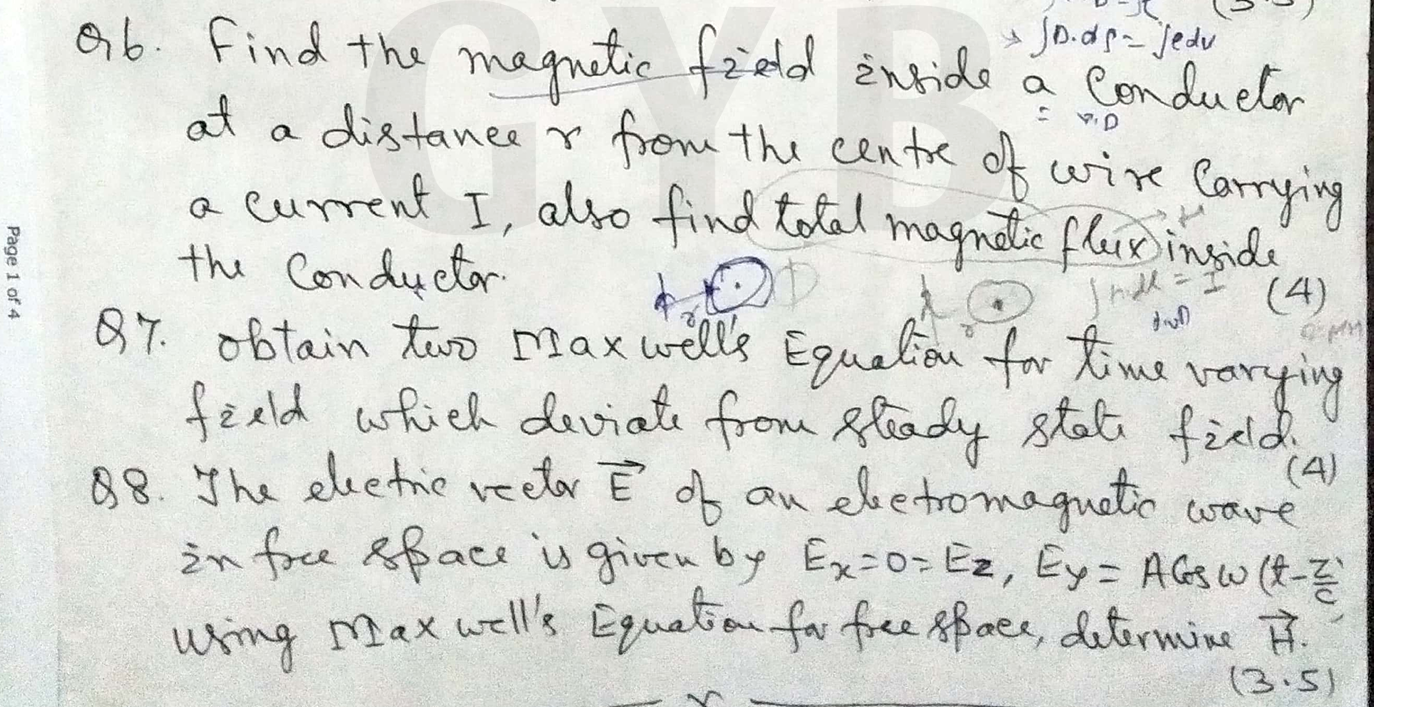 (3.5)
→ ∫D.ds = ∫ρdv
Q6. Find the magnetic field inside a Conductor
∇.D
at a distance r from the centre of wire Carrying
a current I, also find total magnetic flux inside
the Conductor.
(4)
Q7. obtain two Maxwell's Equation for time varying
field which deviate from steady state field.
(4)
Q8. The electric vector E⃗ of an electromagnetic wave
in free space is given by Ex=0=Ez, Ey= A Cos ω (t-z/c)
using Maxwell's Equation for free space, determine H⃗.
(3.5)
x
Page 1 of 4
GYB